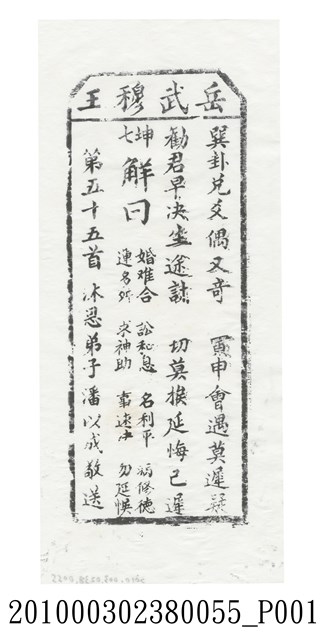 岳武穆王
巽卦兌爻偶又奇 寅申會遇莫遲疑
勸君早決坐途誌 切莫挨延悔已遲
坤七 解曰
婚难合 訟和息 名利平 病修德
連名所 求神助 事速決 勿延悞
第五十五首 沐恩弟子潘以成敬送
201000302380055_P001